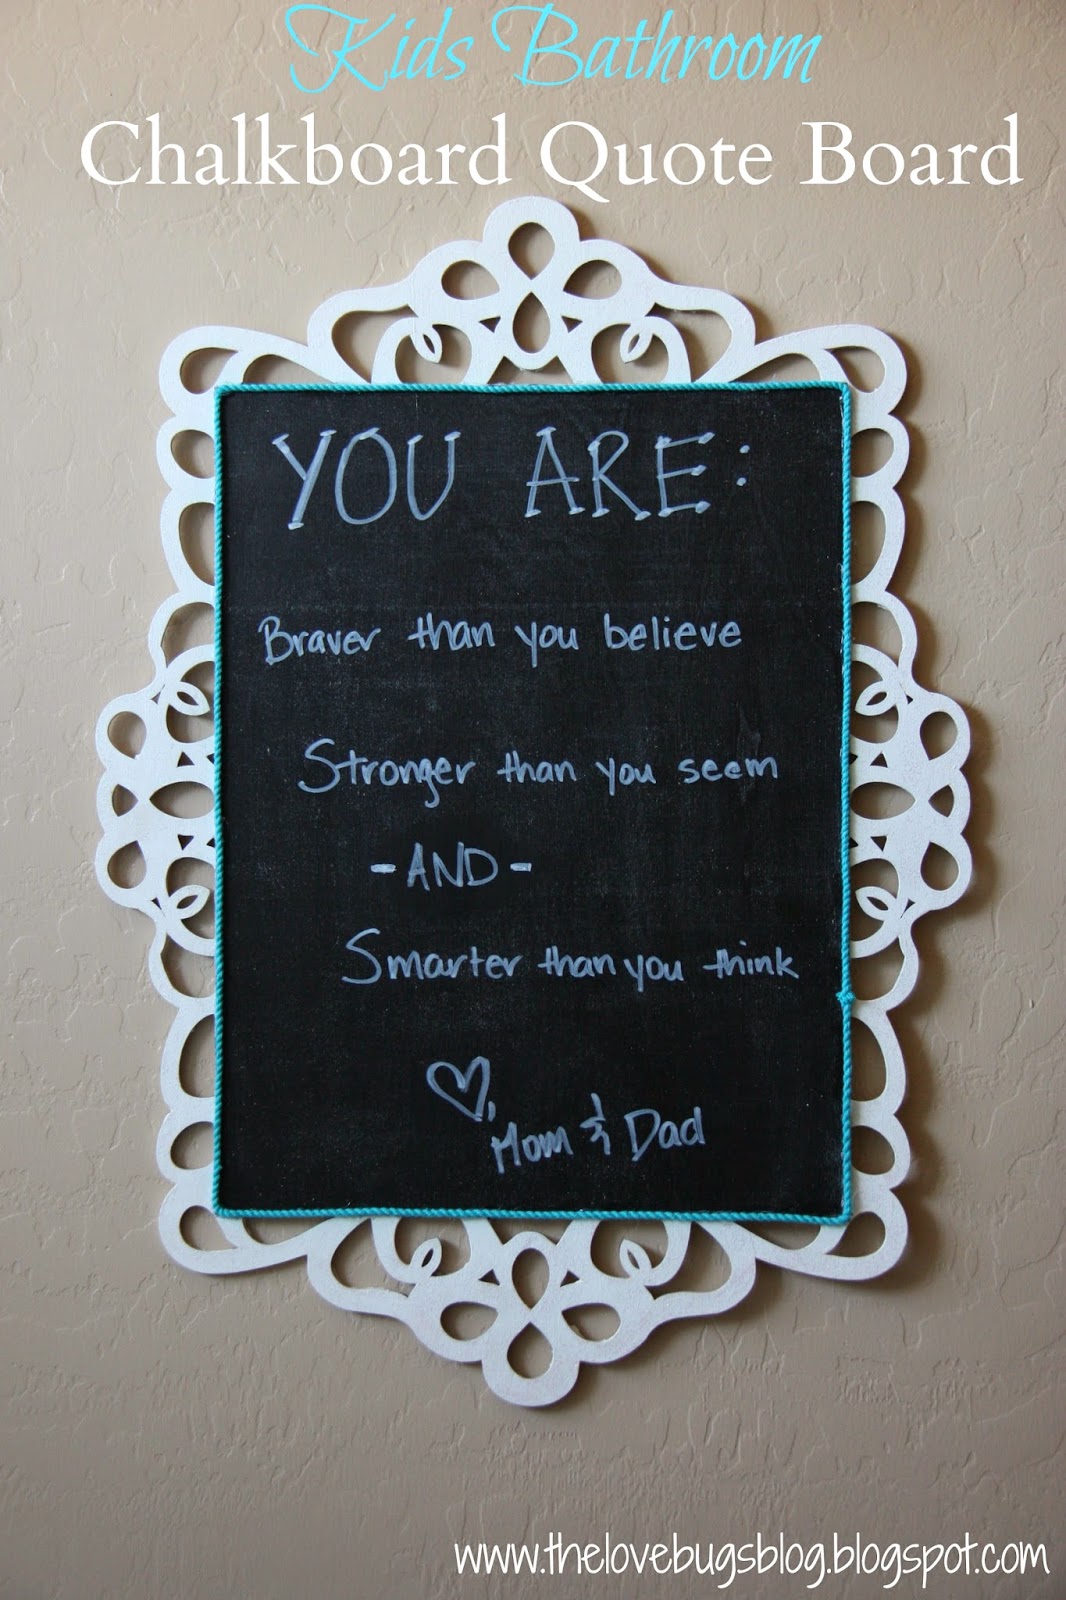 Kids Bathroom
Chalkboard Quote Board
YOU ARE:
Braver than you believe
Stronger than you seem
-AND-
Smarter than you think
♡,
Mom & Dad
www.thelovebugsblog.blogspot.com